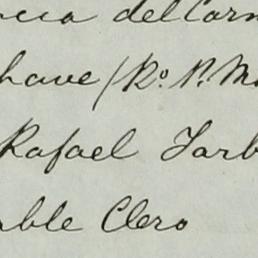 cca del Carm
have / Ro. P. M
Rafael Tarb
able Clero